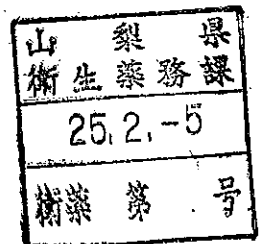 山梨県
衛生薬務課
25.2.-5
衛薬第 号